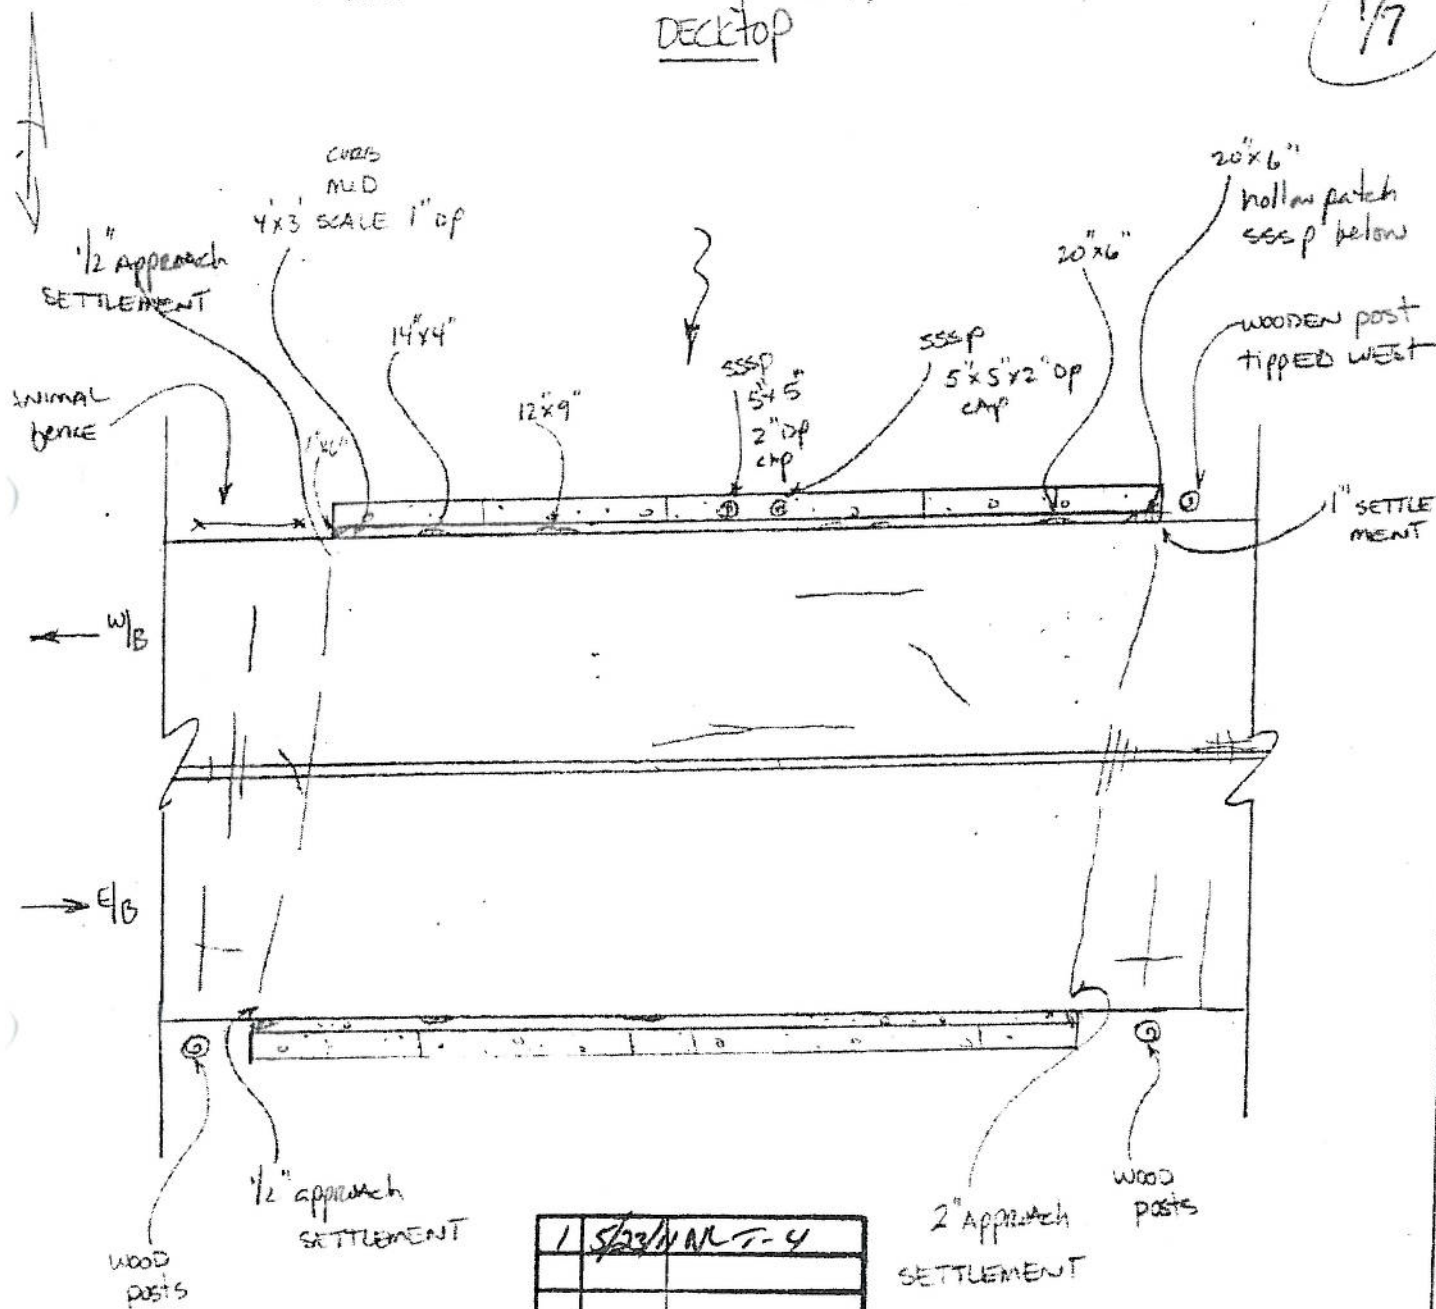 DECKTOP
1/7
CURB
MUD
4'x3' SCALE 1" DP
1/2" Approach
SETTLEMENT
ANIMAL
fence
14"x4"
12"x9"
SSSP
5"x5"
2" DP
CAP
SSSP
5"x5"x2" DP
CAP
20"x6"
20"x6"
hollow patch
SSSP below
WOODEN post
TIPPED WEST
1" SETTLE
MENT
W/B
E/B
1/2" approach
SETTLEMENT
WOOD
posts
2" Approach
SETTLEMENT
WOOD
posts
1 5/23/11 T-4